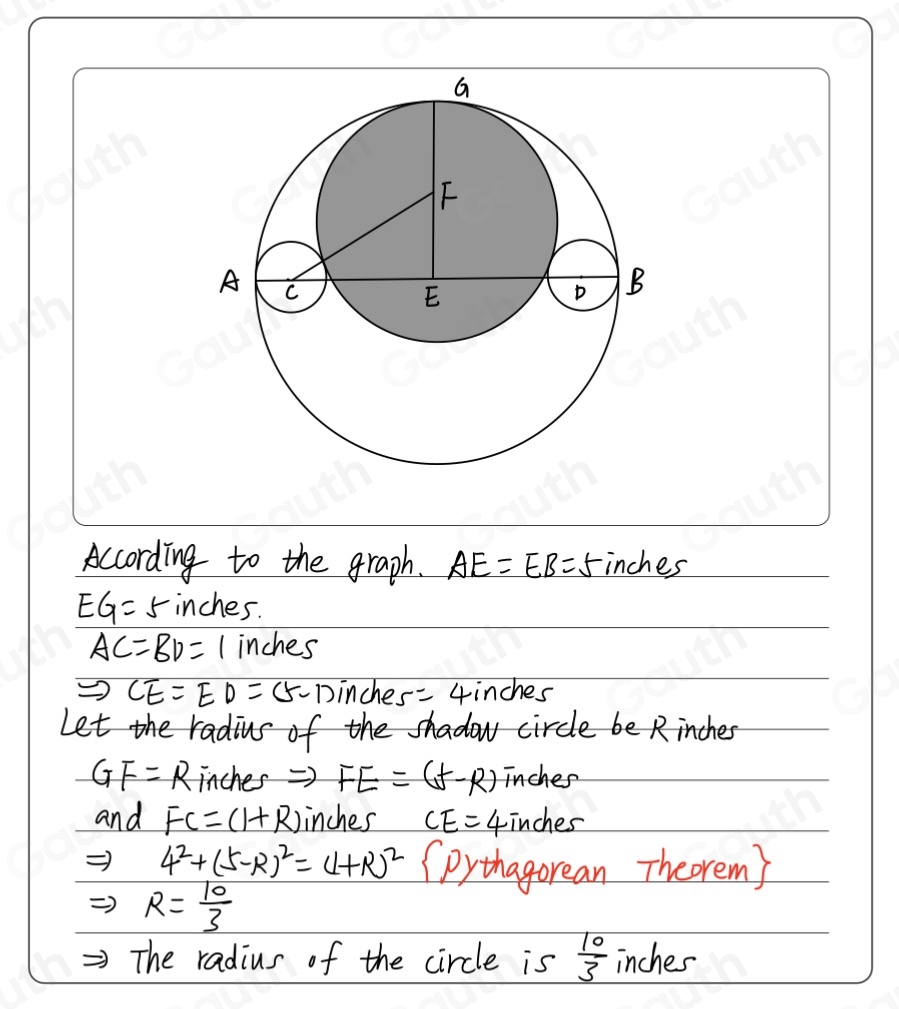 G
F
A
C
E
D
B
According to the graph. AE = EB = 5 inches
EG = 5 inches.
AC = BD = 1 inches
⇒ CE = ED = (5-1) inches = 4 inches
Let the radius of the shadow circle be R inches
GF = R inches ⇒ FE = (5-R) inches
and FC = (1+R) inches CE = 4 inches
⇒ 4² + (5-R)² = (1+R)² {Pythagorean Theorem}
⇒ R = 10/3
⇒ The radius of the circle is 10/3 inches
Gauth